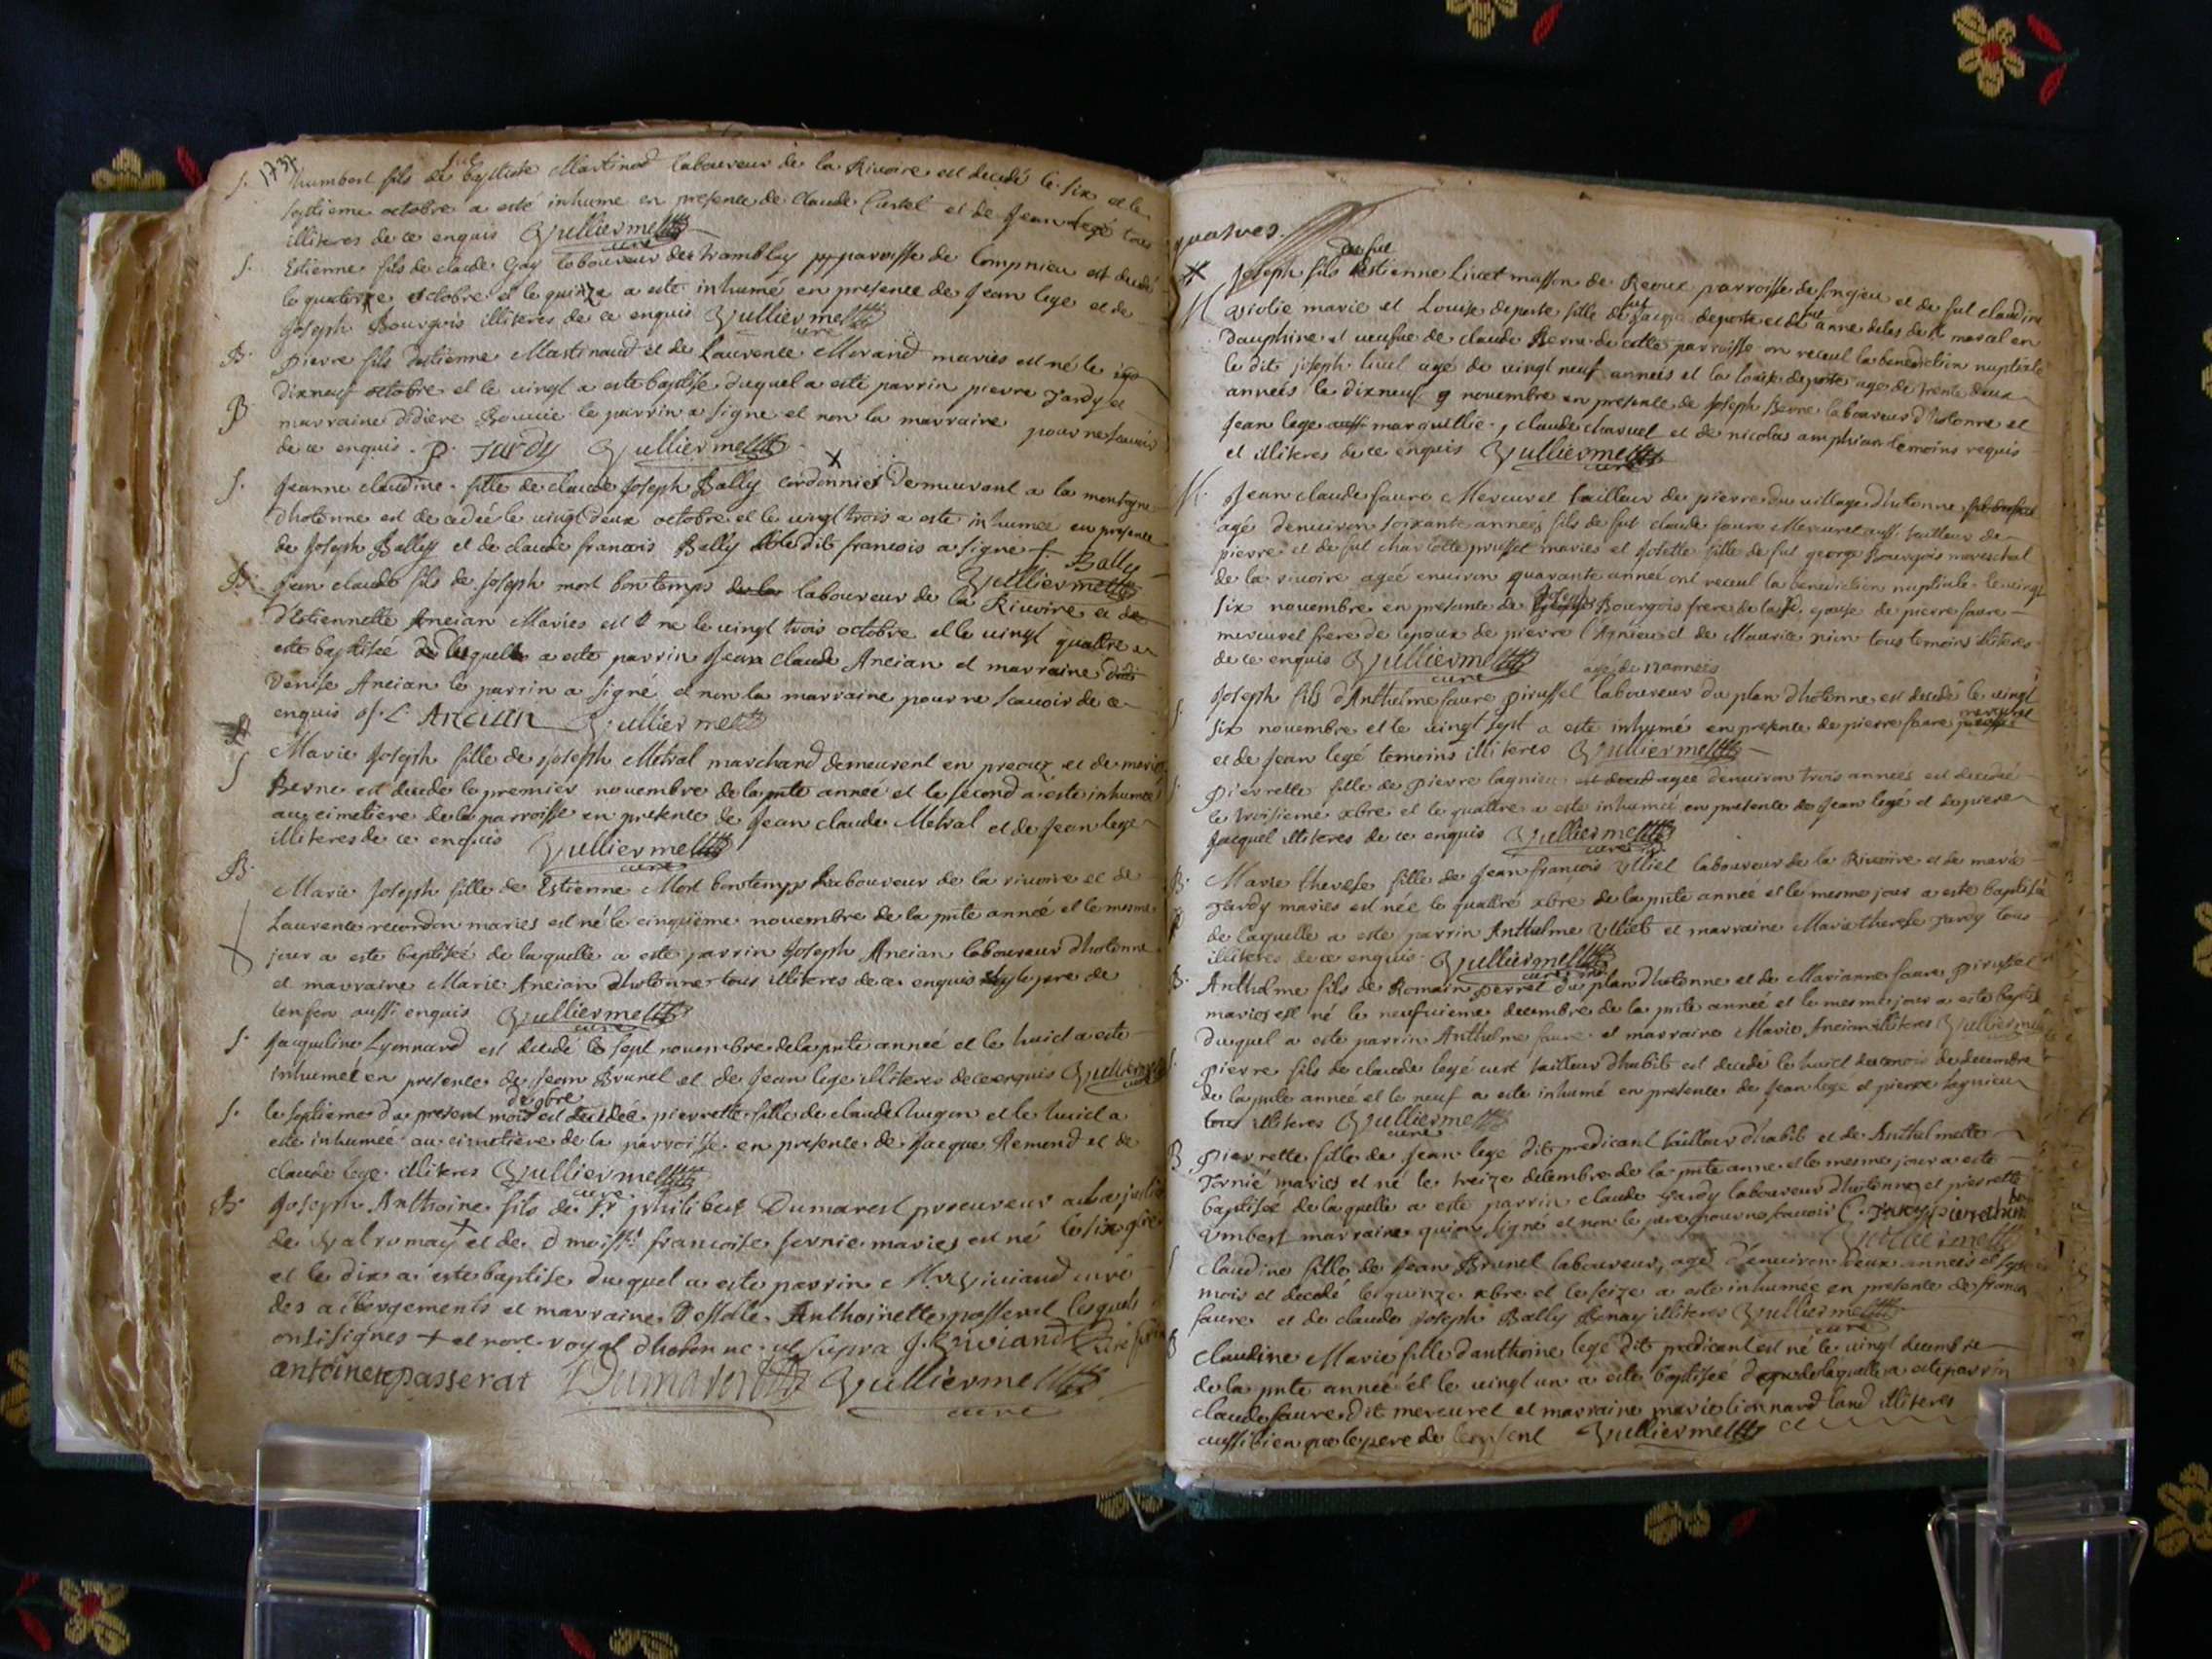 1734
S. humbert fils de feu baptiste Martinod laboureur de la Rivoire est decedé le six et le
septieme octobre a esté inhume en presence de Claude Curtel et de Jean legé tous
illiteres de ce enquis Vulliermet curé
S. Estienne fils de claude Gay laboureur de tramblay parroisse de Compnieu est decedé
le quatorze octobre et le quinze a este inhumé en presence de Jean lege et de
Joseph Bourgois illiteres de ce enquis Vulliermet curé
B. pierre fils destienne Martinaud et de Laurence Morand mariés est né le
dixneuf octobre et le vingt a este baptise duquel a esté parrin pierre Jardy et
B marraine didiere Bouvie le parrin a signe et non la marraine pour ne scavoir
de ce enquis. p. Jardy Vulliermet
S. Jeanne claudine fille de claude Joseph Bally Cordonnier Demeurant a la montagne
dhotonne est decedeé le vingt deux octobre et le vingt trois a este inhumeé en presence
de Joseph Bally et de claude francois Bally ledit francois a signe f. Bally
Vulliermet
B. Jean claude fils de Joseph mort bontemps laboureur de la Rivoire et de
d'Estiennette Ancian Mariés est ne le vingt trois octobre et le vingt quattre a
este baptiseé duquel a este parrin Jean Claude Ancian et marraine
Denise Ancian le parrin a signé et non la marraine pour ne scavoir de ce
enquis J. C. Ancian Vulliermet
S Marie Joseph fille de Joseph Metral marchand demeurent en preoux et de marie
Berne est decede le premier novembre de la pnte anneé et le second a este inhumeé
au cimetiere de la parroisse en presence de Jean claude Metral et de Jean lege
illiteres de ce enquis Vulliermet curé
B. Marie Joseph fille de Estienne Mort bontemps Laboureur de la rivoire et de
Laurence recordon maries est né le cinquieme novembre de la pnte anneé et le mesme
jour a este baptiseé de laquelle a este parrin Joseph Ancian laboureur dhotonne
et marraine Marie Ancian dhotonne tous illiteres de ce enquis le pere de
lenfen aussi enquis Vulliermet curé
S. Jacqueline Lyonnard est decedé le sept novembre de la pnte anneé et le huict a este
inhumeé en presence de Jean Brunel et de Jean lege illiteres de ce enquis Vulliermet curé
S. le septieme du present mois de 9bre est decedeé pierrette fille de claude hugon et le huict a
este inhumeé au cimetiere de la parroisse en presence de Jacque Remond et de
claude lege illiteres Vulliermet curé
B Joseph Anthoine fils de Sr philibert Dumarest procureur au
de Valromay + et de Dmoiselle francoise fernie maries est né le six
et le dix a este baptise duquel a este parrin Mr Viviand curé
des abbergements et marraine Anthoinette passerat lesquels
ont signes + et nore royal dhotonne ut supra J. Viviand Curé
antoinete passerat Dumarest Vulliermet
curé
quatres.
M Joseph fils de feu Estienne Livet masson de Reoux parroisse de songieu et de fut claudine
violie marie et Louise deporte fille de fut Jacque deporte et de fut anne delas de St marcel en
Dauphine et veufue de claude Berne de cette parroisse on receut la benediction nuptiale
le dit joseph livet agé de vingt neuf anneés et la louise deporte age de trente deux
anneés le dixneuf 9 novembre en presence de Joseph Berne laboureur dhotonne et
Jean lege marguillie, claude charvet et de nicolas amphian temoins requis
et illiteres de ce enquis Vulliermet curé
M. Jean claude faure Mercuret tailleur de pierre du village dhotonne
agé denviron soixante anneés fils de fut claude faure Mercuret aussi tailleur de
pierre et de fut charlotte prusset maries et Josette fille de fut george Bourgois mareschal
de la rivoire ageé environ quarante anneé ont receut la benediction nuptiale le vingt
six novembre en presence de Joseph Bourgois frere de lad. epouse de pierre faure
mercuret frere de lepoux de pierre l'Agnieu et de Maurice tous temoins illiteres
de ce enquis Vulliermet curé
agé de 12 anneés
S. Joseph fils d'Anthelme faure pirussel laboureur du plan dhotonne est decedé le vingt
six novembre et le vingt sept a este inhumé en presence de pierre faure mercuret
et de Jean legé temoins illiteres Vulliermet
S. pierrette fille de pierre lagnieu ageé denviron trois anneés est decedeé
le troisieme xbre et le quattre a este inhumeé en presence de Jean legé et de piere
Jacquel illiteres de ce enquis Vulliermet curé
B. Marie therese fille de Jean francois Ulliet laboureur de la Rivoire et de marie
Jardy maries est neé le quattre xbre de la pnte anneé et le mesme jour a este baptisé
de laquelle a este parrin Anthelme Ulliet et marraine Marie therese Jardy tous
illiteres de ce enquis Vulliermet curé
B. Anthelme fils de Romain perret du plan dhotonne et de Marianne faure pirussel
maries est né le neufvieme decembre de la pnte anneé et le mesme jour a este baptisé
duquel a este parrin Anthelme faure et marraine Marie Ancian illiteres Vulliermet
S. pierre fils de claude legé curt tailleur dhabits est decedé le huict de decembre
de la pnte anneé et le neuf a este inhumé en presence de Jean lege et pierre lagnieu
tous illiteres Vulliermet curé
B pierrette fille de Jean legé dit predicant tailleur dhabit et de Anthelmette
Tornié maries et né le treize decembre de la pnte anne et le mesme jour a este
baptiseé de laquelle a este parrin claude Jardy laboureur dhotonne et pierrette
humbert marraine qui ont signé et non le pere pour ne scavoir C. Jardy pierrethumber
Vulliermet
S Claudine fille de Jean Brunel laboureur, agé d'environ deux anneés et sept
mois et decedé le quinze xbre et le seize a este inhumeé en presence de francois
faure et de claude Joseph Bally illiteres Vulliermet curé
B Claudine Marie fille danthoine legé dit predicant est né le vingt decembre
de la pnte anneé et le vingt un a este baptiseé de laquelle a este parrin
claude faure dit mercuret et marraine marie lionnard illiteres
aussi bien que le pere de lenfent Vulliermet